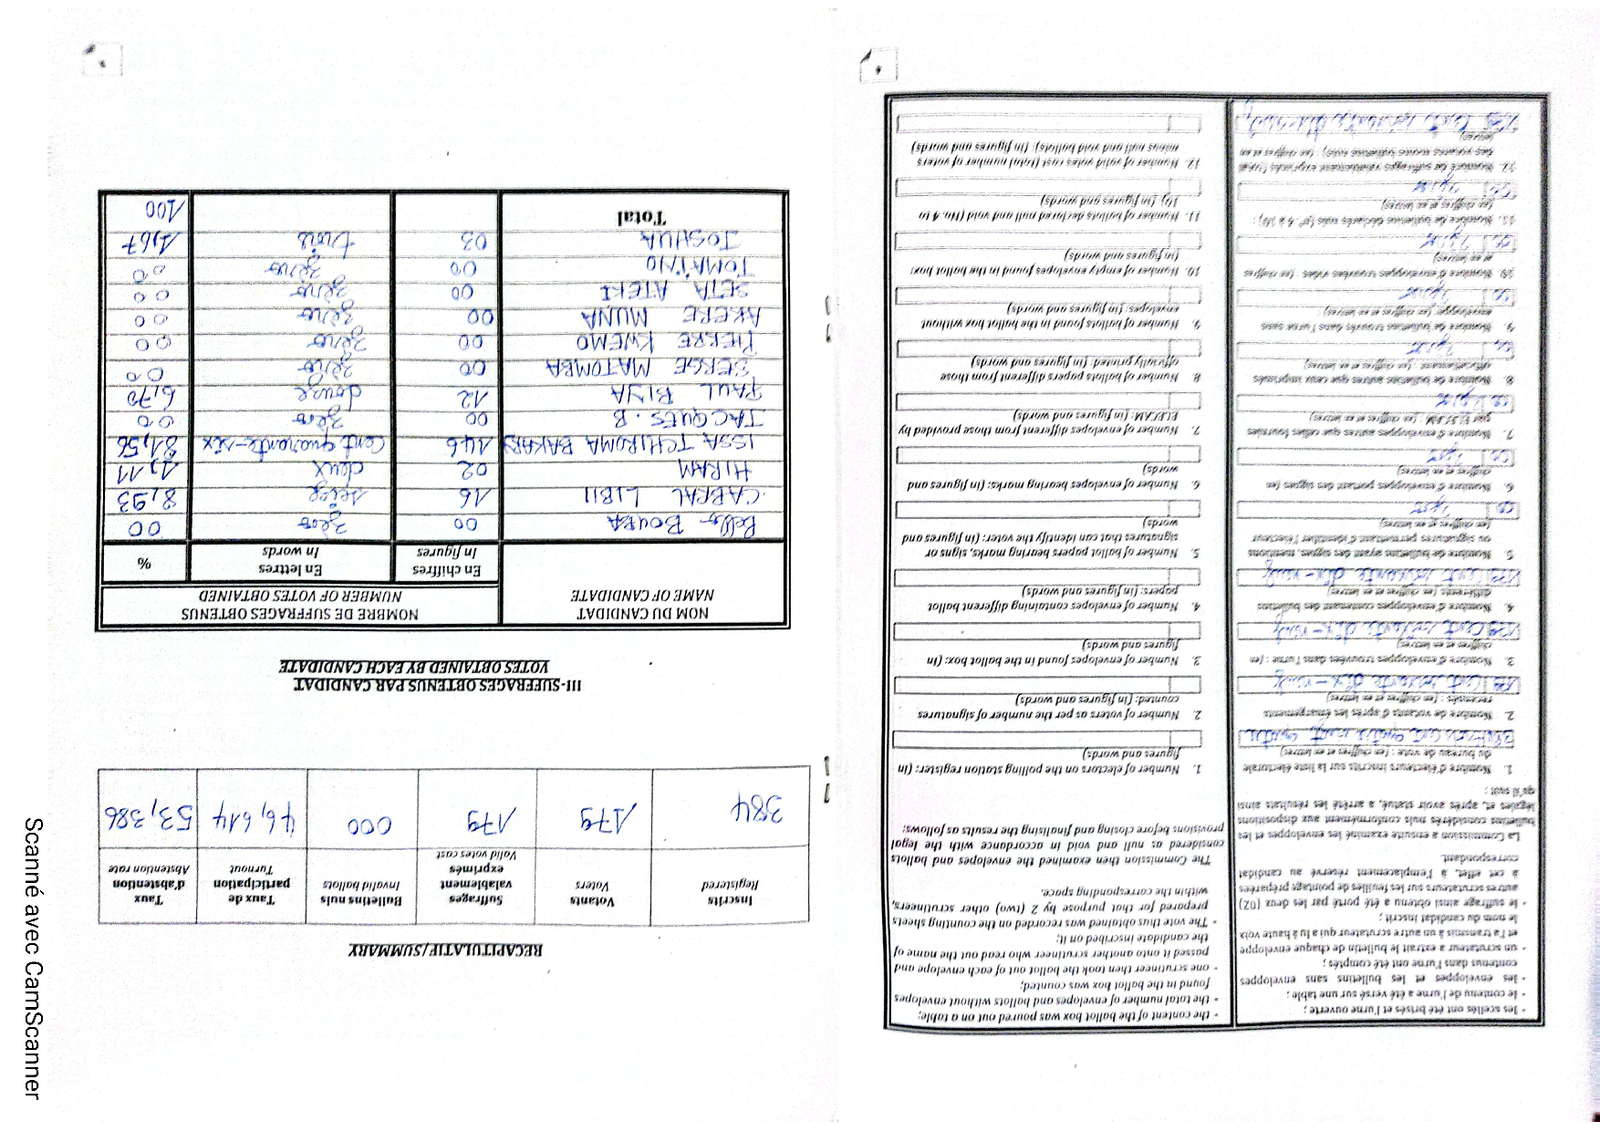 - les scellés ont été brisés et l'urne ouverte ;
- le contenu de l'urne a été versé sur une table ;
- les enveloppes et les bulletins sans enveloppes
contenus dans l'urne ont été comptés ;
- un scrutateur a extrait le bulletin de chaque enveloppe
et l'a transmis à un autre scrutateur qui a lu à haute voix
le nom du candidat inscrit ;
- le suffrage ainsi obtenu a été porté par les deux (02)
autres scrutateurs sur les feuilles de pointage préparées
à cet effet, à l'emplacement réservé au candidat
correspondant.
La Commission a ensuite examiné les enveloppes et les
bulletins considérés nuls conformément aux dispositions
légales et, après avoir statué, a arrêté les résultats ainsi
qu'il suit :
1. Nombre d'électeurs inscrits sur la liste électorale
du bureau de vote : (en chiffres et en lettres)
384 trois cent quatre vingt quatre
2. Nombre de votants d'après les émargements
recensés : (en chiffres et en lettres)
179 Cent soixante dix-neuf
3. Nombre d'enveloppes trouvées dans l'urne : (en
chiffres et en lettres)
179 Cent soixante dix-neuf
4. Nombre d'enveloppes contenant des bulletins
différents : (en chiffres et en lettres)
179 Cent soixante dix-neuf
5. Nombre de bulletins ayant des signes, mentions
ou signatures permettant d'identifier l'électeur
(en chiffres et en lettres)
00 zéro
6. Nombre d'enveloppes portant des signes (en
chiffres et en lettres)
00 zéro
7. Nombre d'enveloppes autres que celles fournies
par ELECAM (en chiffres et en lettres)
00 zéro
8. Nombre de bulletins autres que ceux imprimés
officiellement (en chiffres et en lettres)
00 zéro
9. Nombre de bulletins trouvés dans l'urne sans
enveloppe (en chiffres et en lettres)
00 zéro
10. Nombre d'enveloppes trouvées vides : (en chiffres
et en lettres)
00 zéro
11. Nombre de bulletins déclarés nuls (N°. 4 à 10) :
(en chiffres et en lettres)
00 zéro
12. Nombre de suffrages valablement exprimés (total
des votants moins bulletins nuls) : (en chiffres et en
lettres)
179 Cent soixante dix-neuf
- the content of the ballot box was poured out on a table;
- the total number of envelopes and ballots without envelopes
found in the ballot box was counted;
- one scrutineer then took the ballot out of each envelope and
passed it onto another scrutineer who read out the name of
the candidate inscribed on it;
- The vote thus obtained was recorded on the counting sheets
prepared for that purpose by 2 (two) other scrutineers,
within the corresponding space.
The Commission then examined the envelopes and ballots
considered as null and void in accordance with the legal
provisions before closing and finalising the results as follows:
1. Number of electors on the polling station register: (in
figures and words)
2. Number of voters as per the number of signatures
counted: (in figures and words)
3. Number of envelopes found in the ballot box: (in
figures and words)
4. Number of envelopes containing different ballot
papers: (in figures and words)
5. Number of ballot papers bearing marks, signs or
signatures that can identify the voter: (in figures and
words)
6. Number of envelopes bearing marks: (in figures and
words)
7. Number of envelopes different from those provided by
ELECAM: (in figures and words)
8. Number of ballots papers different from those
officially printed: (in figures and words)
9. Number of ballots found in the ballot box without
envelopes: (in figures and words)
10. Number of empty envelopes found in the ballot box:
(in figures and words)
11. Number of ballots declared null and void (No. 4 to
10) (in figures and words)
12. Number of valid votes cast (total number of voters
minus null and void ballots): (in figures and words)
RECAPITULATIF/SUMMARY
Inscrits Registered | Votants Voters | Suffrages valablement exprimés Valid votes cast | Bulletins nuls Invalid ballots | Taux de participation Turnout | Taux d'abstention Abstention rate
384 | 179 | 179 | 000 | 46,614 | 53,386
III-SUFFRAGES OBTENUS PAR CANDIDAT
VOTES OBTAINED BY EACH CANDIDATE
NOM DU CANDIDAT NAME OF CANDIDATE | NOMBRE DE SUFFRAGES OBTENUS NUMBER OF VOTES OBTAINED
En chiffres In figures | En lettres In words | %
Bello BOUBA 00 zéro 00
CABRAL LIBII 16 seize 8,93
HIRAM 02 deux 1,11
ISSA TCHIROMA BAKARY 146 Cent quarante-six 81,56
JACQUES. B 00 zéro 00
PAUL BIYA 12 douze 6,70
SERGE MATOMBA 00 zéro 00
PIERRE KWEMO 00 zéro 00
AKERE MUNA 00 zéro 00
SETA ATEKI 00 zéro 00
TOMAÏNO 00 zéro 00
JOSHUA 03 trois 1,67
Total 100
Scanné avec CamScanner